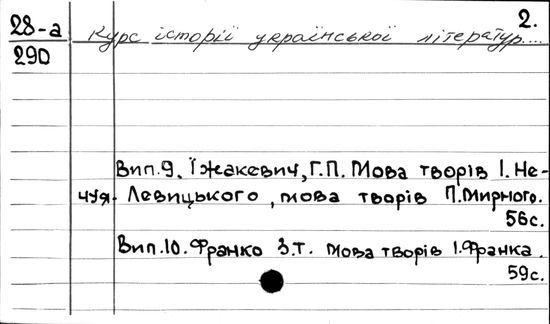 28-а Курс історії української літератур.... 2.
290
Вип.9. Їжакевич, Г.П. Мова творів І. Не-
чуя- Левицького, мова творів П. Мирного.
56с.
Вип.10. Франко З.Т. Мова творів І. Франка.
59с.